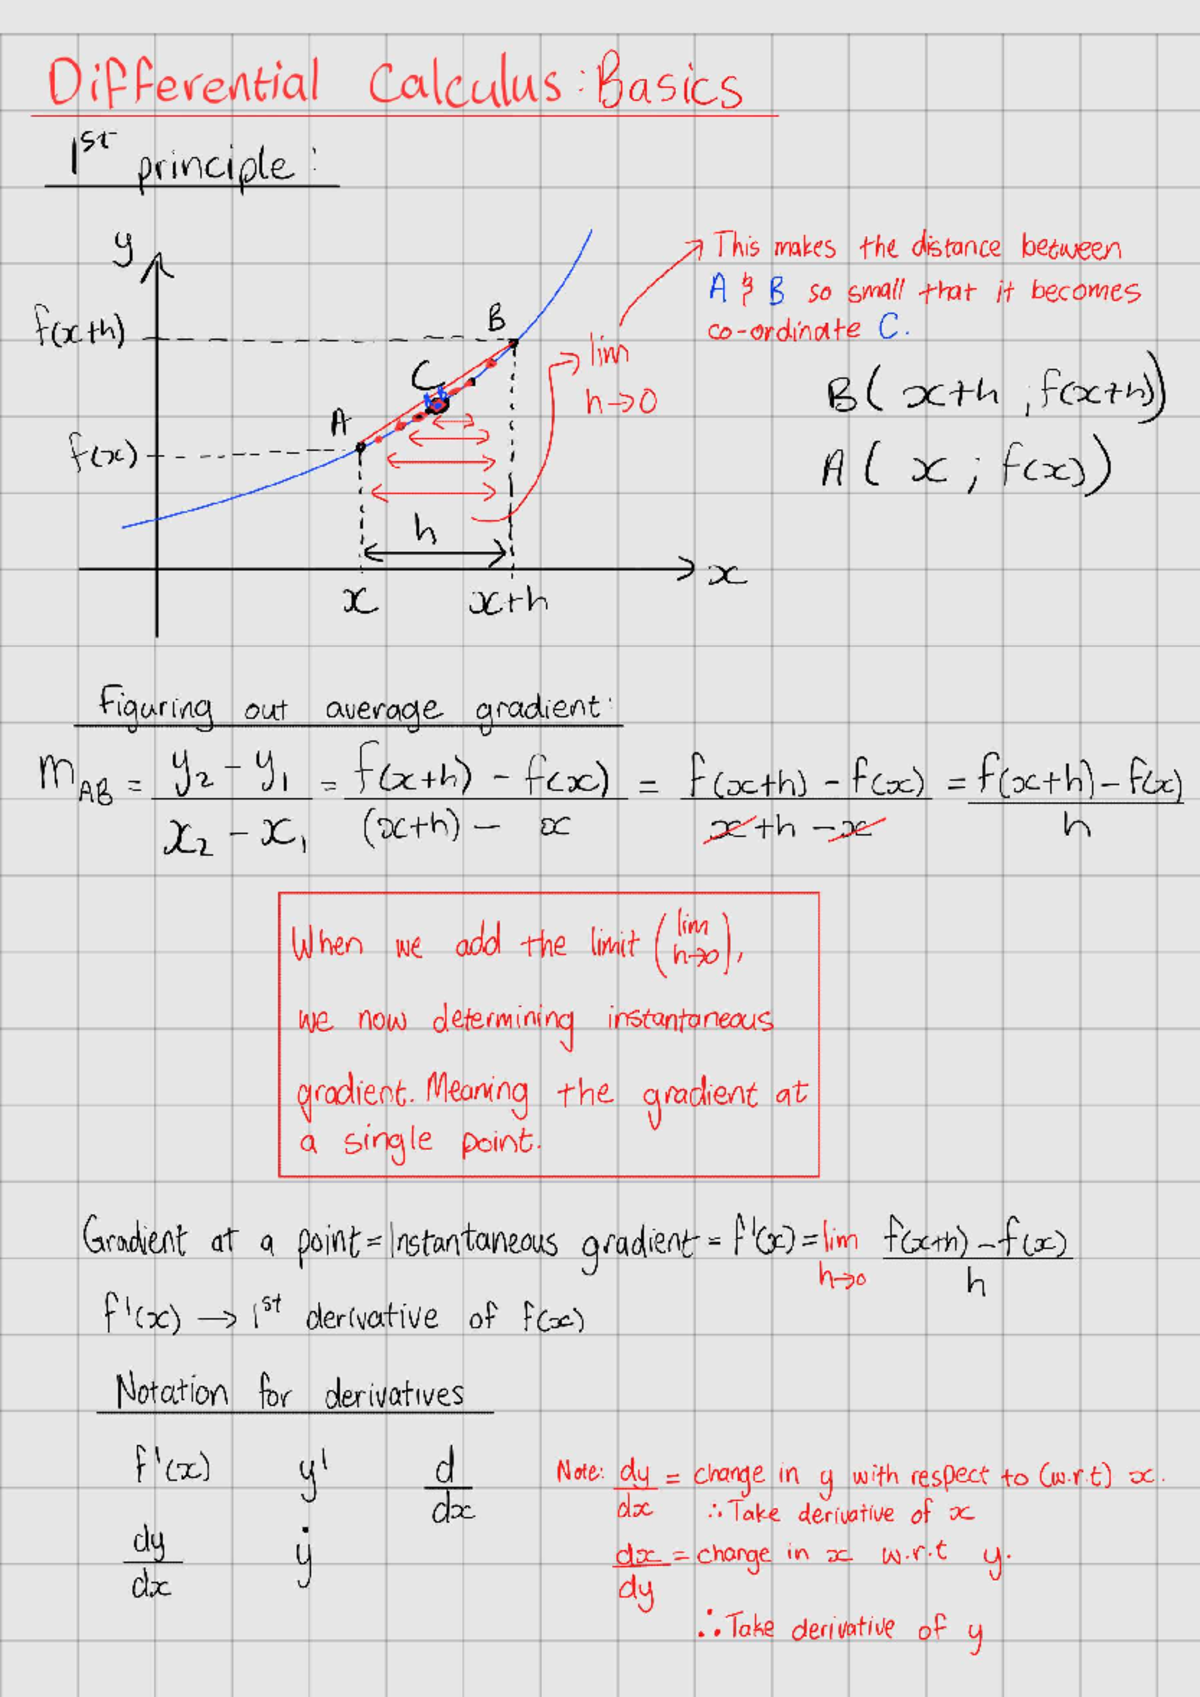 Differential Calculus: Basics
1st principle:
y
f(x+h)
f(x)
A
C
B
h
x
x+h
x
lim
h→0
This makes the distance between
A & B so small that it becomes
co-ordinate C.
B( x+h ; f(x+h))
A( x ; f(x))
Figuring out average gradient:
m_AB = (y₂ - y₁)/(x₂ - x₁) = (f(x+h) - f(x))/((x+h) - x) = (f(x+h) - f(x))/(x+h - x) = (f(x+h) - f(x))/h
When we add the limit (lim h→0),
we now determining instantaneous
gradient. Meaning the gradient at
a single point.
Gradient at a point = Instantaneous gradient = f'(x) = lim h→0 (f(x+h) - f(x))/h
f'(x) → 1st derivative of f(x)
Notation for derivatives
f'(x) y' d/dx
dy/dx ẏ
Note: dy/dx = change in y with respect to (w.r.t) x.
∴ Take derivative of x
dx/dy = change in x w.r.t y.
∴ Take derivative of y